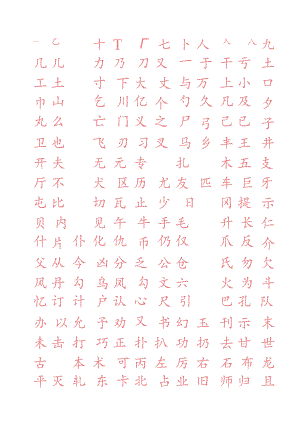 一 乙 十 丁 厂 七 卜 人 八 八 九
几 儿 力 乃 刀 又 一 于 干 亏 土
工 土 寸 下 大 丈 与 万 上 小 口
巾 山 乞 川 亿 个 勺 久 凡 及 夕
丸 么 亡 门 义 之 尸 弓 己 已 子
卫 也 飞 刃 习 叉 马 乡 丰 王 井
开 夫 无 元 专 扎 木 五 支
厅 不 犬 区 历 尤 友 匹 车 巨 牙
屯 比 切 瓦 止 少 日 冈 提 示
贝 内 见 午 牛 手 毛 升 长 仁
什 片 仆 化 仇 币 仍 仅 爪 反 介
父 从 今 凶 分 乏 公 仓 氏 勿 欠
风 丹 勾 乌 凤 勾 文 六 火 为 斗
忆 订 计 户 认 心 尺 引 巴 孔 队
办 以 允 予 劝 又 书 幻 玉 刊 示 末
未 击 打 巧 正 扑 扒 功 扔 去 甘 世
古 本 术 可 丙 左 厉 右 石 布 龙
平 灭 轧 东 卡 北 占 业 旧 师 归 且